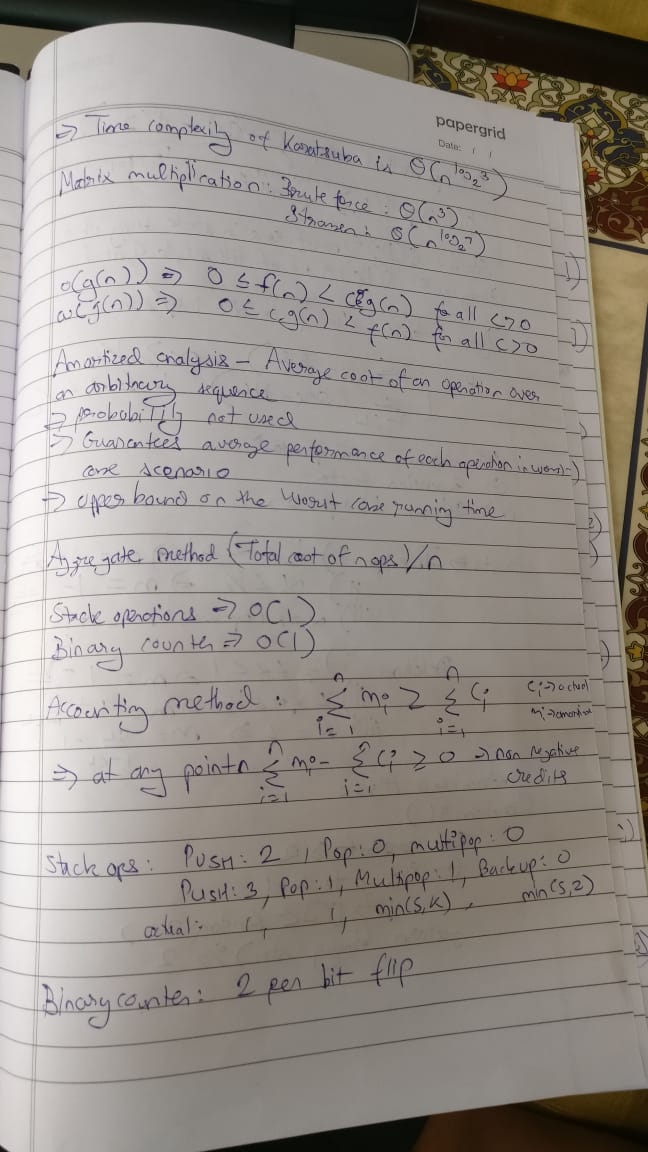 papergrid
Date: / /
⇒ Time complexity of Karatsuba is Θ(n^log₂3)
Matrix multiplication: Brute force: Θ(n³)
Strassen: Θ(n^log₂7)
o(g(n)) ⇒ 0 ≤ f(n) < cg(n) for all c>0
ω(g(n)) ⇒ 0 ≤ cg(n) < f(n) for all c>0
Amortized analysis – Average cost of an operation over
an arbitrary sequence
⇒ probability not used
⇒ Guarantees average performance of each operation in worst
case scenario
→ upper bound on the worst case running time
Aggregate method (Total cost of n ops)/n
Stack operations ⇒ O(1)
Binary counter ⇒ O(1)
Accounting method: Σ_{i=1}^{n} mᵢ ≥ Σ_{i=1}^{n} cᵢ cᵢ→actual
mᵢ→amortized
⇒ at any point n Σ_{i=1}^{n} mᵢ – Σ_{i=1} cᵢ ≥ 0 ⇒ non negative
credits
Stack ops: PUSH: 2, Pop: 0, multipop: 0
PUSH: 3, Pop: 1, Multipop: 1, Backup: 0
actual: 1, 1, min(S,K), min(S,2)
Binary counter: 2 per bit flip